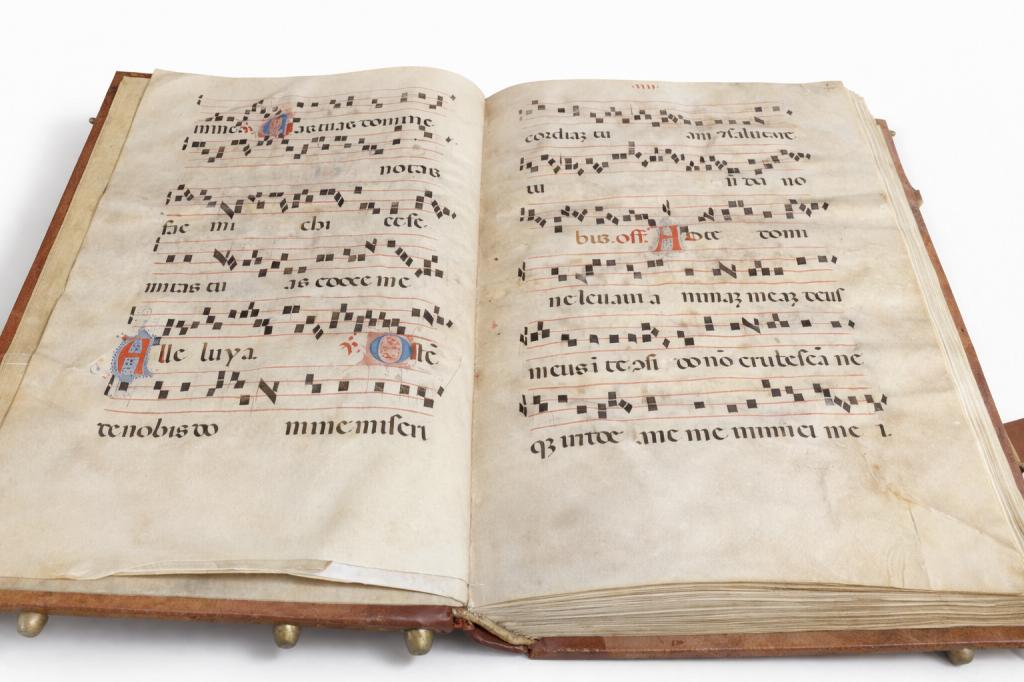 mine. Uias tuas domine
notas
fac mi chi et se
mitas tu as edoce me
Alle luya. Oste
de nobis do mine miseri
IIII
cordiaz tu am ⁊ salutare
tu ū da no
bis. off. Ad te domi
ne levavi a nimaz meaz deus
meus i te ↄfi do nō erubescā ne
qz irride ant me inimici me i.